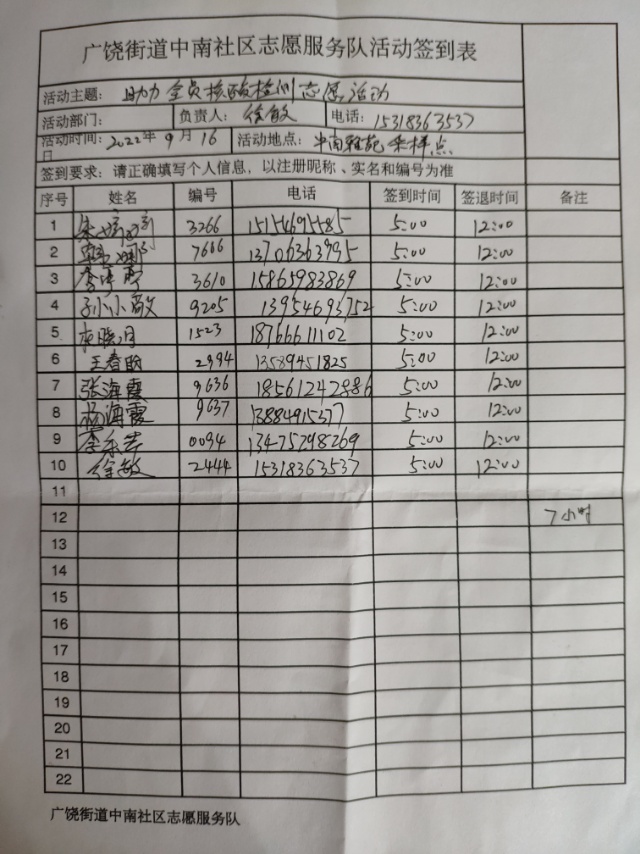 广饶街道中南社区志愿服务队活动签到表
活动主题: 助力全员核酸检测志愿活动
活动部门: 负责人: 徐敏 电话: 15318363537
活动时间: 2022年9月16日 活动地点: 中南雅苑采样点
签到要求: 请正确填写个人信息,以注册昵称、实名和编号为准
序号 姓名 编号 电话 签到时间 签退时间 备注
1 3266 5:00 12:00
2 7666 13706363795 5:00 12:00
3 3610 15865983869 5:00 12:00
4 孙小敏 9205 13954693752 5:00 12:00
5 1523 18766611102 5:00 12:00
6 王春 2994 13589451825 5:00 12:00
7 张海霞 9636 18561242886 5:00 12:00
8 杨海霞 9637 13884915377 5:00 12:00
9 李 0094 13475298269 5:00 12:00
10 徐敏 2444 15318363537 5:00 12:00
11
12 7小时
13
14
15
16
17
18
19
20
21
22
广饶街道中南社区志愿服务队